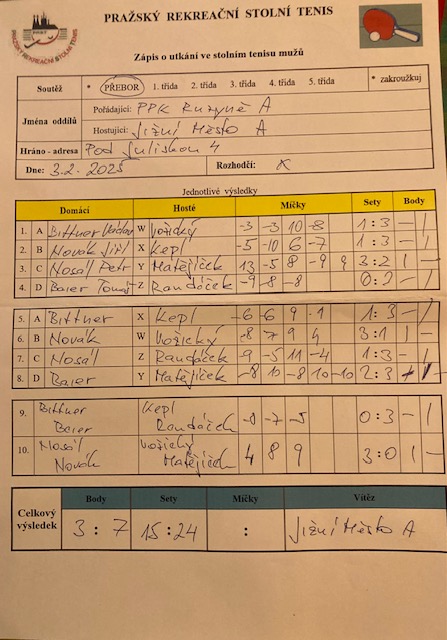 PRAŽSKÝ REKREAČNÍ STOLNÍ TENIS
PRAŽSKÝ REKREAČNÍ STOLNÍ TENIS
Zápis o utkání ve stolním tenisu mužů
Soutěž * PŘEBOR 1. třída 2. třída 3. třída 4. třída 5. třída * zakroužkuj
Jména oddílů
Pořádající: PPK Ruzyně A
Hostující: Jižní Město A
Hráno - adresa Pod Juliskou 4
Dne: 3.2. 2025 Rozhodčí: X
Jednotlivé výsledky
Domácí Hosté Míčky Sety Body
1. A Bittner Václav W Vožický -3 -3 10 -8 1:3 - 1
2. B Novák Jiří X Kepl -5 -10 6 -7 1:3 - 1
3. C Nosál Petr Y Matějíček 13 -5 8 -9 9 3:2 1 -
4. D Baier Tomáš Z Randáček -9 -8 -8 0:3 - 1
5. A Bittner X Kepl -6 -6 9 -1 1:3 - 1
6. B Novák W Vožický -8 7 9 4 3:1 1 -
7. C Nosál Z Randáček -9 -5 11 -4 1:3 - 1
8. D Baier Y Matějíček -8 10 -8 10 -10 2:3 - 1
9. Bittner Kepl
Baier Randáček -8 -7 -5 0:3 - 1
10. Nosál Vožický
Novák Matějíček 4 8 9 3:0 1 -
Body Sety Míčky Vítěz
Celkový výsledek 3:7 15:24 : Jižní Město A